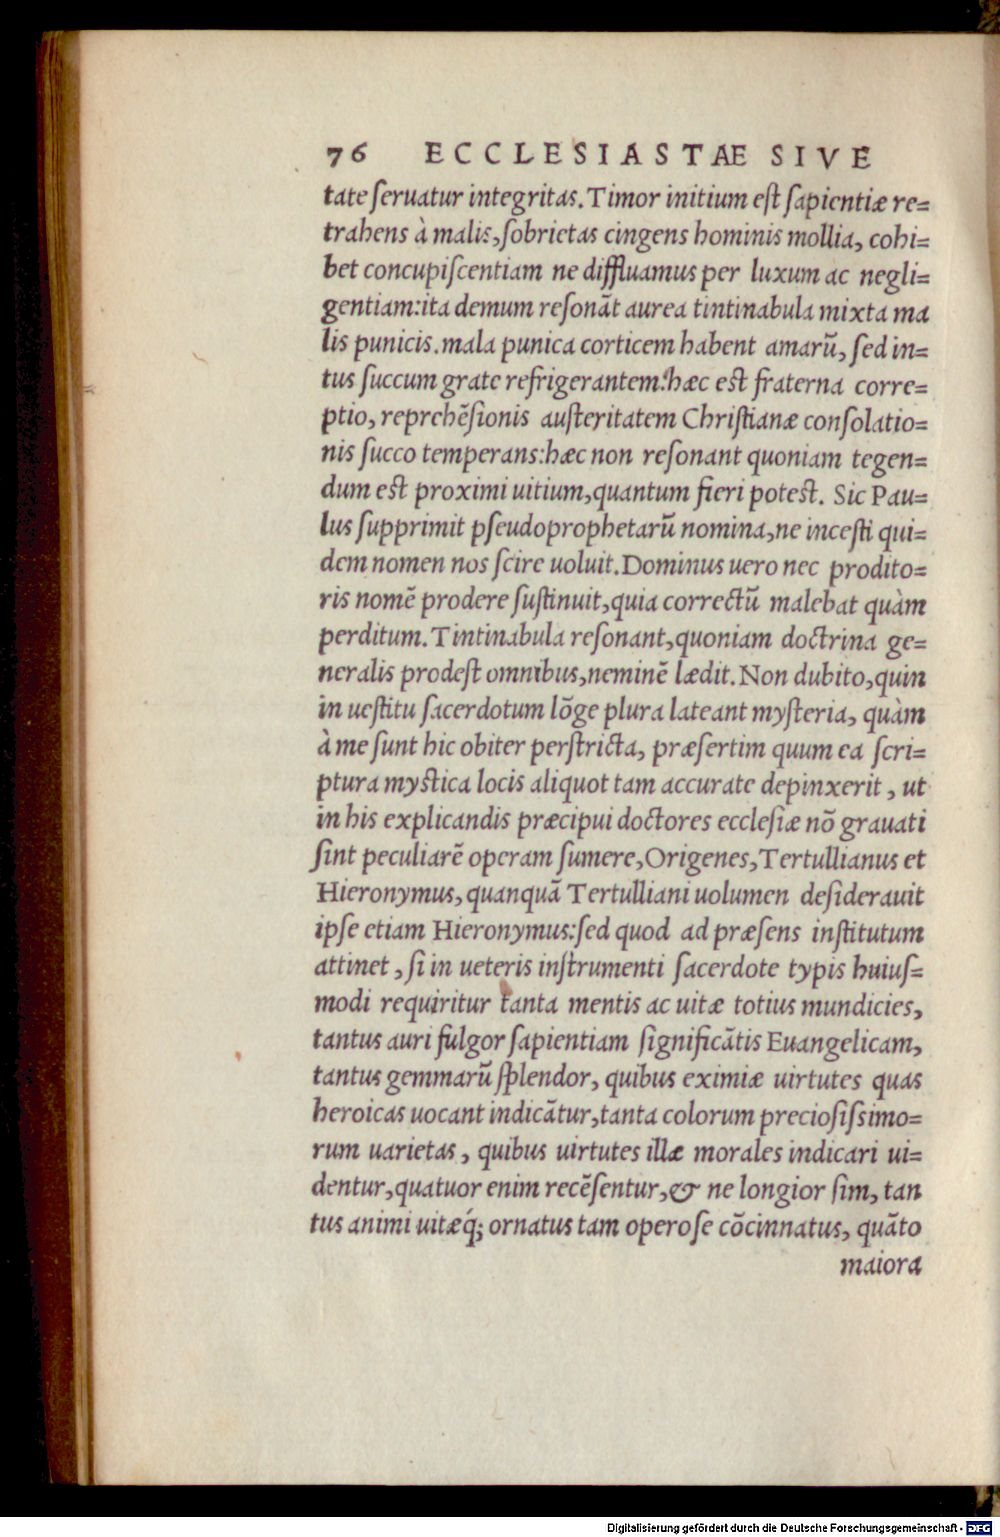 76 ECCLESIASTAE SIVE
tate ſeruatur integritas. Timor initium eſt ſapientiæ re=
trahens à malis, ſobrietas cingens hominis mollia, cohi=
bet concupiſcentiam ne diffluamus per luxum ac negli=
gentiam: ita demum reſonāt aurea tintinabula mixta ma
lis punicis. mala punica corticem habent amarū, ſed in=
tus ſuccum grate refrigerantem: hæc est fraterna corre=
ptio, reprehēſionis auſteritatem Chriſtianæ conſolatio=
nis ſucco temperans: hæc non reſonant quoniam tegen=
dum est proximi uitium, quantum fieri potest. Sic Pau=
lus ſupprimit pſeudoprophetarū nomina, ne inceſti qui=
dem nomen nos ſcire uoluit. Dominus uero nec prodito=
ris nomē prodere ſuſtinuit, quia correctū malebat quàm
perditum. Tintinabula reſonant, quoniam doctrina ge=
neralis prodeſt omnibus, neminē lædit. Non dubito, quin
in ueſtitu ſacerdotum lōge plura lateant myſteria, quàm
à me ſunt hic obiter perſtricta, præſertim quum ea ſcri=
ptura mystica locis aliquot tam accurate depinxerit, ut
in his explicandis præcipui doctores eccleſiæ nō grauati
ſint peculiarē operam ſumere, Origenes, Tertullianus et
Hieronymus, quanquā Tertulliani uolumen deſiderauit
ipſe etiam Hieronymus: sed quod ad præſens inſtitutum
attinet, ſi in ueteris inſtrumenti ſacerdote typis huiuſ=
modi requiritur tanta mentis ac uitæ totius mundicies,
tantus auri fulgor ſapientiam ſignificātis Euangelicam,
tantus gemmarū ſplendor, quibus eximiæ uirtutes quas
heroicas uocant indicātur, tanta colorum precioſiſsimo=
rum uarietas, quibus uirtutes illæ morales indicari ui=
dentur, quatuor enim recēſentur, & ne longior ſim, tan
tus animi uitæq́; ornatus tam operoſe cōcinnatus, quāto
maiora
Digitalisierung gefördert durch die Deutsche Forschungsgemeinschaft - DFG